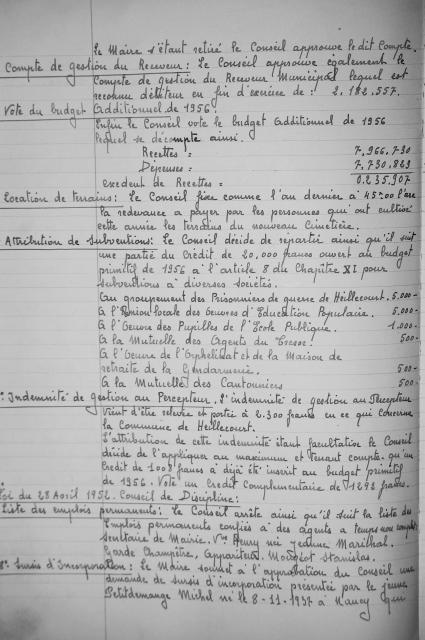 Le Maire s'étant retiré le Conseil approuve ledit Compte.
Compte de gestion du Receveur : Le Conseil approuve également le
Compte de gestion du Receveur Municipal lequel est
reconnu débiteur en fin d'exercice de : 2.182.557.
Vote du budget Additionnel de 1956.
Enfin le Conseil vote le budget Additionnel de 1956
lequel se décompte ainsi.
Recettes = 7.966.730
Dépenses = 7.730.823
excedent de Recettes = 0.235.907
Location de terrains : Le Conseil fixe comme l'an dernier à 45f00 l'are
la redevance à payer par les personnes qui ont cultivé
cette année les terrains du nouveau Cimetière.
Attribution de Subventions : Le Conseil décide de répartir ainsi qu'il suit
une partie du Crédit de 20,000 francs ouvert au budget
primitif de 1956 à l'article 8 du Chapitre XI pour
subventions à diverses sociétés.
Au groupement des Prisonniers de guerre de Heillecourt. 5.000-
à l'Union locale des Oeuvres d'Education Populaire. 5.000-
à l'Oeuvre des Pupilles de l'Ecole Publique. 1.000-
à la Mutuelle des Agents du 500-
à l'Oeuvre de l'Orphelinat et de la Maison de
retraite de la Gendarmerie. 500-
à la Mutuelle des Cantonniers 500-
Indemnité de gestion au Percepteur. L'indemnité de gestion au Percepteur
vient d'être relevée et portée à 2.300 francs en ce qui concerne
la Commune de Heillecourt.
L'attribution de cette indemnité étant facultative le Conseil
décide de l'appliquer au maximum et tenant compte qu'un
Crédit de francs a déjà été inscrit au budget primitif
de 1956. Vote un Crédit Complémentaire de francs.
Loi du 28 Avril 1952. Conseil de Discipline :
Liste des emplois permanents : Le Conseil arrête ainsi qu'il suit la liste des
Emplois permanents confiés à des agents à temps non complet
Secrétaire de Mairie. Vve Henry née Jeanne
Garde Champêtre, Appariteur. Stanislas.
Sursis d'Incorporation : Le Maire soumet à l'approbation du Conseil une
demande de sursis d'incorporation présentée par le jeune
Petitdemange Michel né le 8-11-1937 à Nancy qui